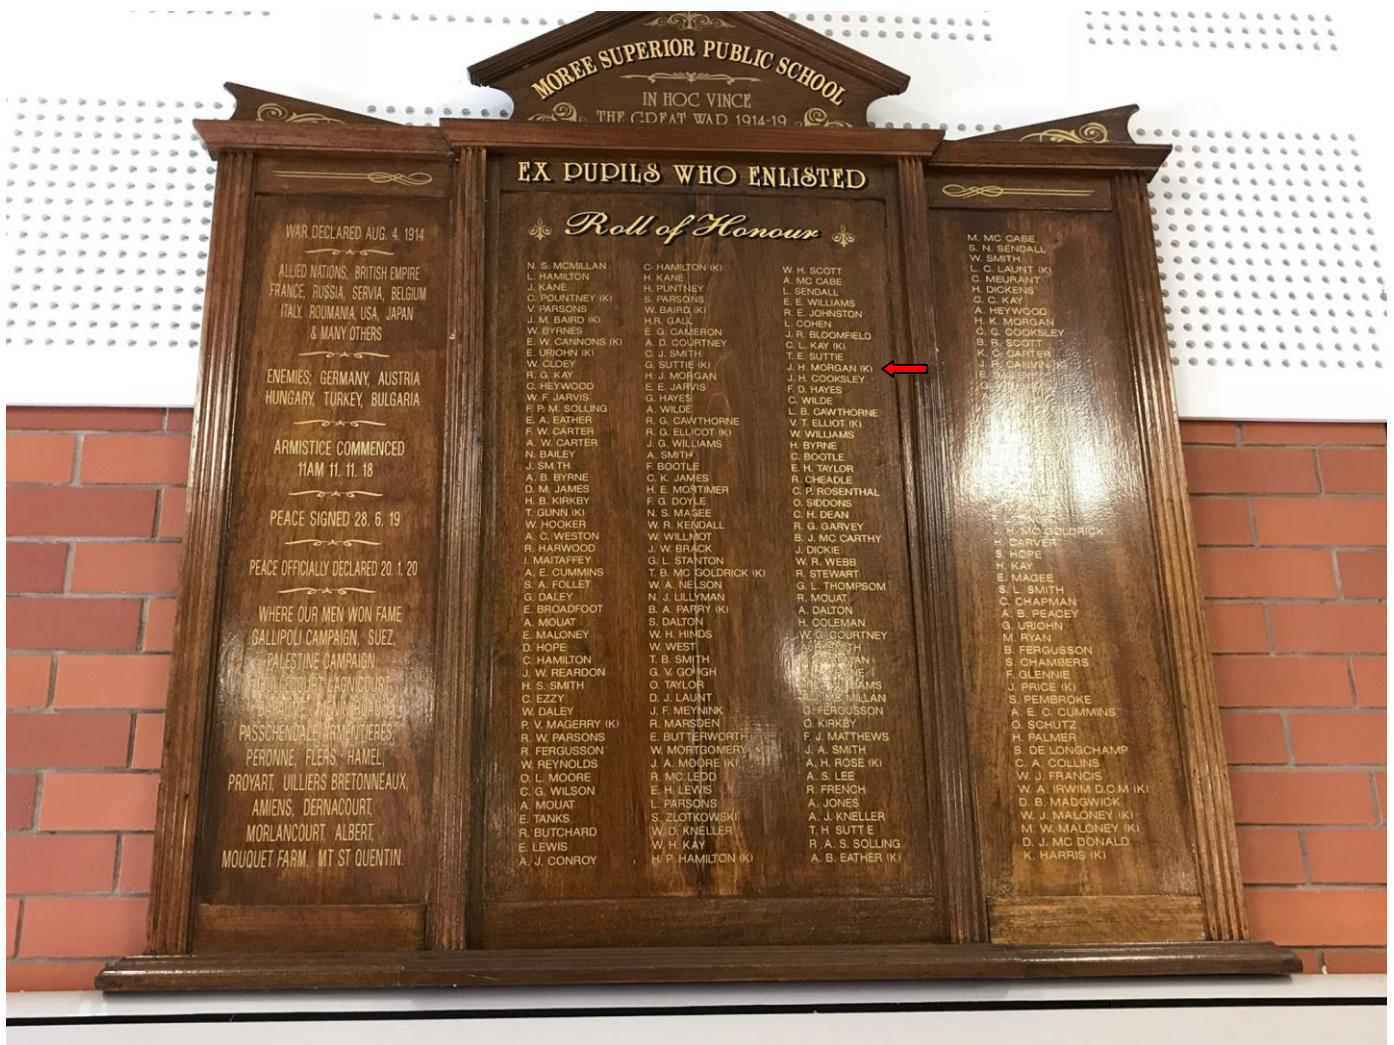 MOREE SUPERIOR PUBLIC SCHOOL
IN HOC VINCE
THE GREAT WAR 1914-19
EX PUPILS WHO ENLISTED
Roll of Honour
WAR DECLARED AUG. 4. 1914
ALLIED NATIONS, BRITISH EMPIRE
FRANCE, RUSSIA, SERVIA, BELGIUM
ITALY, ROUMANIA, USA, JAPAN
& MANY OTHERS
ENEMIES; GERMANY, AUSTRIA
HUNGARY, TURKEY, BULGARIA
ARMISTICE COMMENCED
11AM 11. 11. 18
PEACE SIGNED 28. 6. 19
PEACE OFFICIALLY DECLARED 20. 1. 20
WHERE OUR MEN WON FAME
GALLIPOLI CAMPAIGN, SUEZ.
PALESTINE CAMPAIGN.
BULLECOURT LAGNICOURT
PASSCHENDALE ARMENTIERES,
PERONNE, FLERS, HAMEL,
PROYART, UILLIERS BRETONNEAUX,
AMIENS, DERNACOURT,
MORLANCOURT, ALBERT,
MOUQUET FARM, MT ST QUENTIN.
N. S. MCMILLAN
L. HAMILTON
J. KANE
C. POUNTNEY (K)
V. PARSONS
J. M. BAIRD (K)
W. BYRNES
E. W. CANNONS (K)
E. URJOHN (K)
W. CLOEY
R. G. KAY
C. HEYWOOD
W. F. JARVIS
F. P. M. SOLLING
E. A. EATHER
F. W. CARTER
A. W. CARTER
N. BAILEY
J. SM TH
A. B. BYRNE
D. M. JAMES
H. B. KIRKBY
T. GUNN (K)
W. HOOKER
A. C. WESTON
R. HARWOOD
I. MAITAFFEY
A. E. CUMMINS
S. A. FOLLET
G. DALEY
E. BROADFOOT
A. MOUAT
E. MALONEY
D. HOPE
C. HAMILTON
J. W. REARDON
H. S. SMITH
C. EZZY
W. DALEY
P. V. MAGERRY (K)
R. W. PARSONS
R. FERGUSSON
W. REYNOLDS
O. L. MOORE
C. G. WILSON
A. MOUAT
E. TANKS
R. BUTCHARD
E. LEWIS
A. J. CONROY
C. HAMILTON (K)
H. KANE
H. PUNTNEY
S. PARSONS
W. BAIRD (K)
H.R. GALL
E. G. CAMERON
A. D. COURTNEY
C. J. SMITH
G. SUTTIE (K)
H. J. MORGAN
E. E. JARVIS
G. HAYES
A. WILDE
R. G. CAWTHORNE
R. G. ELLICOT (K)
J. G. WILLIAMS
A. SMITH
F. BOOTLE
C. K. JAMES
H. E. MORTIMER
F. G. DOYLE
N. S. MAGEE
W. R. KENDALL
W. WILLMOT
J. W. BRACK
G. L. STANTON
T. B. MC GOLDRICK (K)
W. A. NELSON
N. J. LILLYMAN
B. A. PARRY (K)
S. DALTON
W. H. HINDS
W. WEST
T. B. SMITH
G. V. GOUGH
O. TAYLOR
D. J. LAUNT
J. F. MEYNINK
R. MARSDEN
E. BUTTERWORTH
W. MORTGOMERY
J. A. MOORE (K)
R. MC.LEOD
E. H. LEWIS
L. PARSONS
S. ZLOTKOWSKI
W. D. KNELLER
W. H. KAY
H. P. HAMILTON (K)
W. H. SCOTT
A. MC CABE
L. SENDALL
E. E. WILLIAMS
R. E. JOHNSTON
L. COHEN
J. R. BLOOMFIELD
C. L. KAY (K)
T. E. SUTTIE
J. H. MORGAN (K)
J. H. COOKSLEY
F. D. HAYES
C. WILDE
L. B. CAWTHORNE
V. T. ELLIOT (K)
W. WILLIAMS
H. BYRNE
C. BOOTLE
E. H. TAYLOR
R. CHEADLE
C. P. ROSENTHAL
O. SIDDONS
C. H. DEAN
R. G. GARVEY
B. J. MC CARTHY
J. DICKIE
W. R. WEBB
R. STEWART
G. L. THOMPSOM
R. MOUAT
A. DALTON
H. COLEMAN
W. G. COURTNEY
G. FERGUSSON
O. KIRKBY
F. J. MATTHEWS
J. A. SMITH
A. H. ROSE (K)
A. S. LEE
R. FRENCH
A. JONES
A. J. KNELLER
T. H SUTT E
R. A. S. SOLLING
A. B. EATHER (K)
M. MC CABE
S. N. SENDALL
W. SMITH
L. C. LAUNT (K)
C. MEURANT
H. DICKENS
C. C. KAY
A. HEYWOOD
H. K. MORGAN
C. C. COOKSLEY
B. R. SCOTT
K. C. CARTER
J. R. CANVIN (K)
MC GOLDRICK
H. CARVER
S. HOPE
H. KAY
E. MAGEE
S. L. SMITH
C. CHAPMAN
A. B. PEACEY
G. URJOHN
M. RYAN
B. FERGUSSON
S. CHAMBERS
F. GLENNIE
J. PRICE (K)
S. PEMBROKE
A. E. C. CUMMINS
O. SCHUTZ
H. PALMER
S. DE LONGCHAMP
C. A. COLLINS
W. J. FRANCIS
W. A. IRWIM D.C.M (K)
D. B. MADGWICK
W. J. MALONEY (K)
M. W. MALONEY (K)
D. J. MC DONALD
K. HARRIS (K)